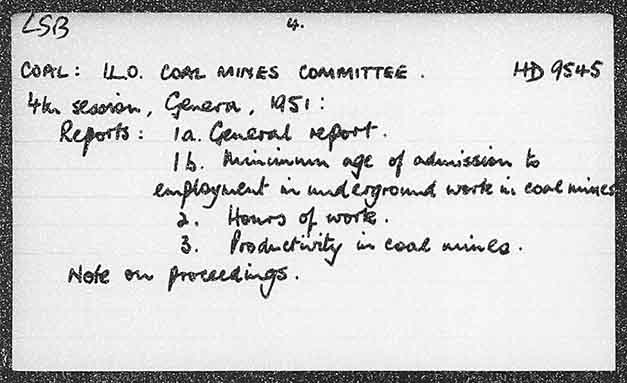 LSB 4.
COAL: I.L.O. COAL MINES COMMITTEE. HD 9545
4th session, Geneva, 1951:
Reports: 1a. General report.
1b. Minimum age of admission to
employment in underground work in coal mines
2. Hours of work.
3. Productivity in coal mines.
Note on proceedings.